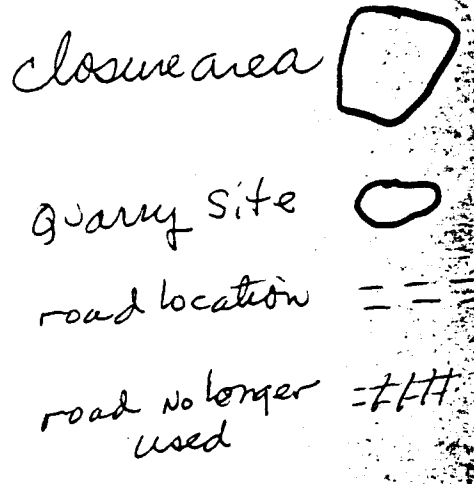 closure area
Quarry Site
road location
road No longer
used